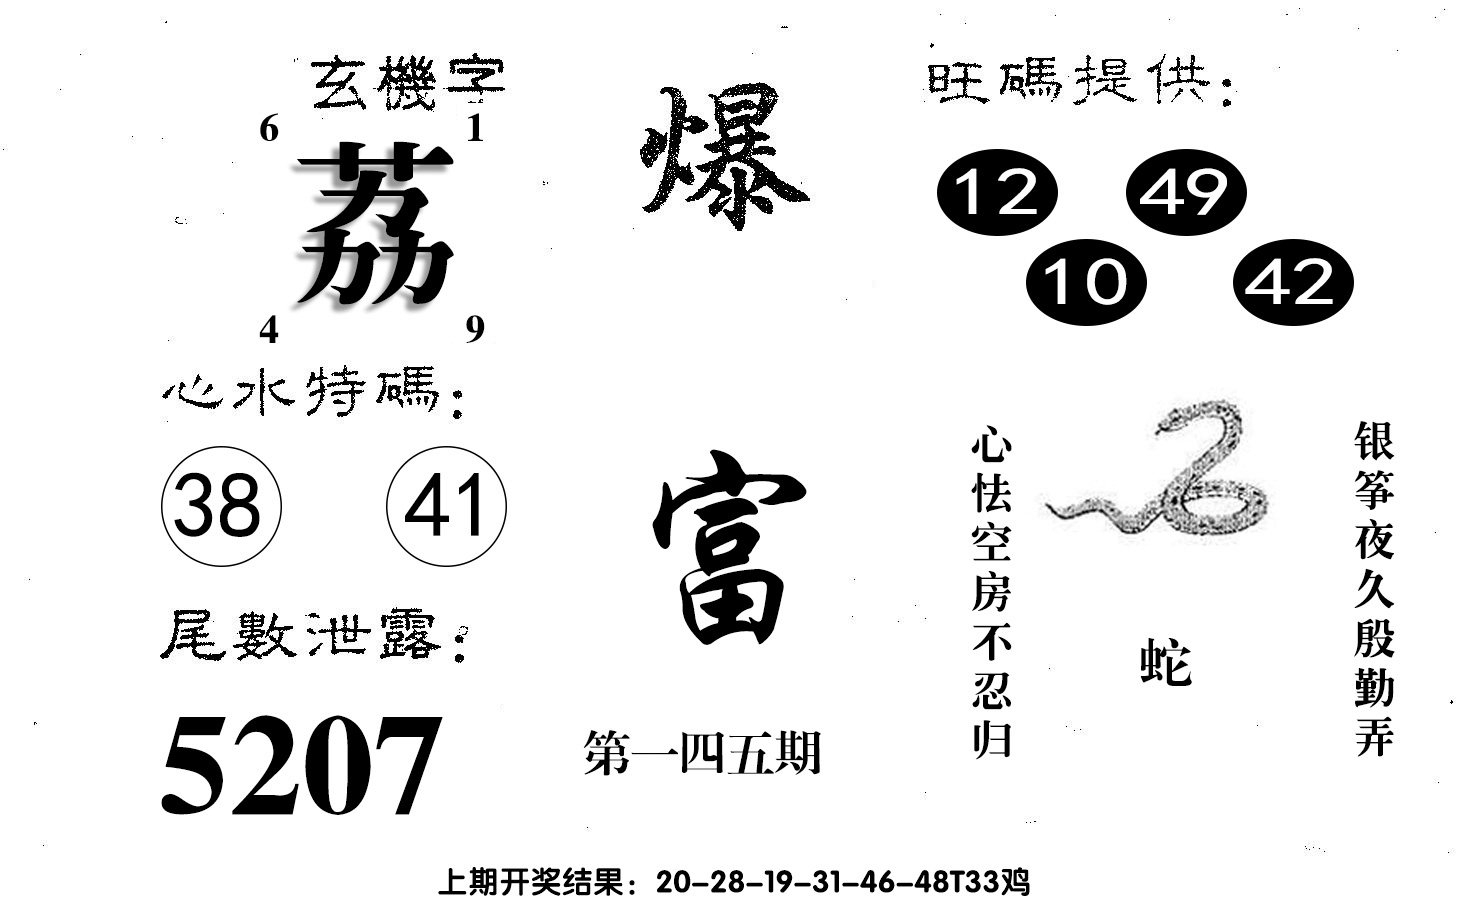 玄機字
6 1
荔
4 9
心水特碼：
38 41
尾數泄露：
5207
爆
富
第一四五期
旺碼提供：
12 49
10 42
银筝夜久殷勤弄
心怯空房不忍归
蛇
上期开奖结果：20-28-19-31-46-48T33鸡